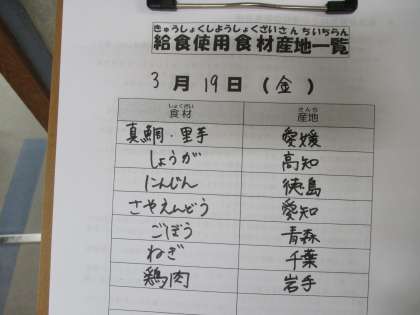 きゅうしょくしようしょくざいさんちいちらん
給食使用食材産地一覧
3月19日（金）
しょくざい さんち
食材 産地
真鯛・里手 愛媛
しょうが 高知
にんじん 徳島
さやえんどう 愛知
ごぼう 青森
ねぎ 千葉
鶏肉 岩手